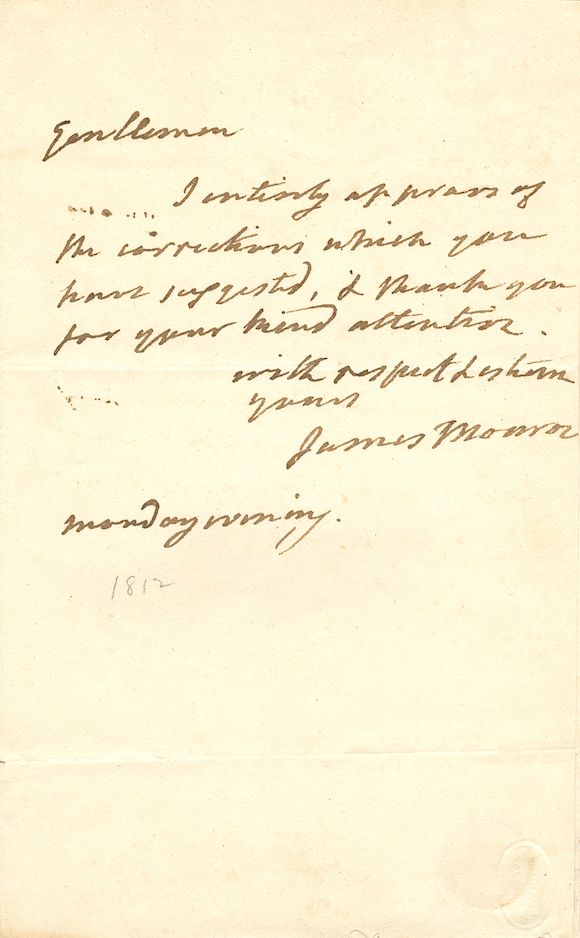 Gentlemen
I entirely approve of
the corrections which you
have suggested, & thank you
for your kind attention.
with respect & esteem
yours
James Monroe
monday evening.
1812